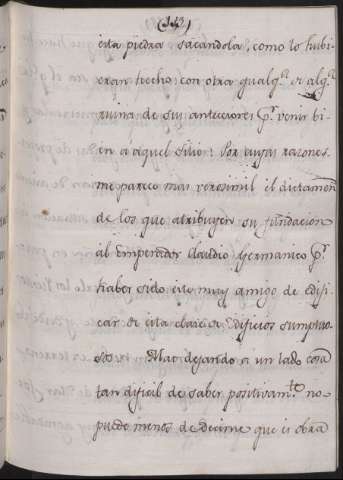 esta piedra sacandola, como lo hubi
eran hecho con otra qualq.r
ruina de sus antecesores p.r venir bi
en a aquel sitio: Por cuyas razones
me parece mas verosimil el dictamen
de los que atribuyen su fundacion
al Emperador Claudio Germanico p.r
haber sido este muy amigo de edifi
car de esta clase de Edificios sumptuo
sos. Mas dejando a un lado cosa
tan dificil de saber positivam.te no
puede menos de decirse que es obra